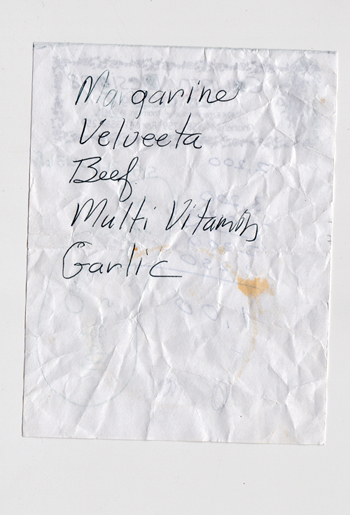 Margarine
Velveeta
Beef
Multi Vitamin
Garlic